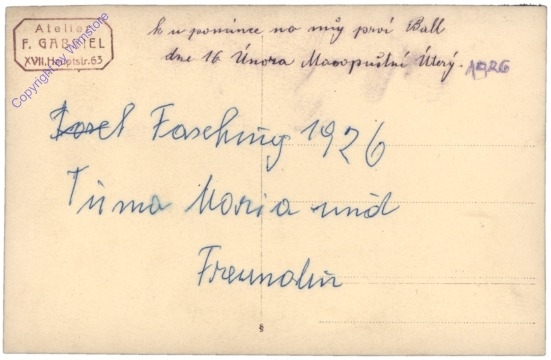 Atelier
F. GABRIEL
XVII. Hauptstr. 63
Copyright by Wimstore
k u pomínce na můj prví Ball
dne 16 Února Masopustní Úterý. 1926
Josef Fasching 1926
Tuma Maria und
Freundin
§